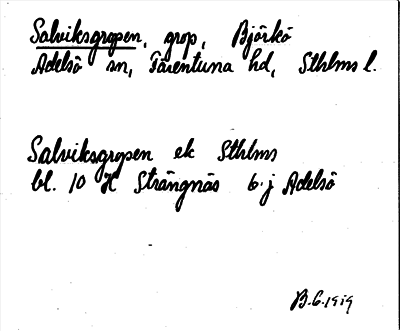 Salviksgropen, grop, Björkö
Adelsö sn, Färentuna hd, Sthlms l.
Salviksgropen ek Sthlms
bl. 10 H Strängnäs 6 j Adelsö
B.G. 1919